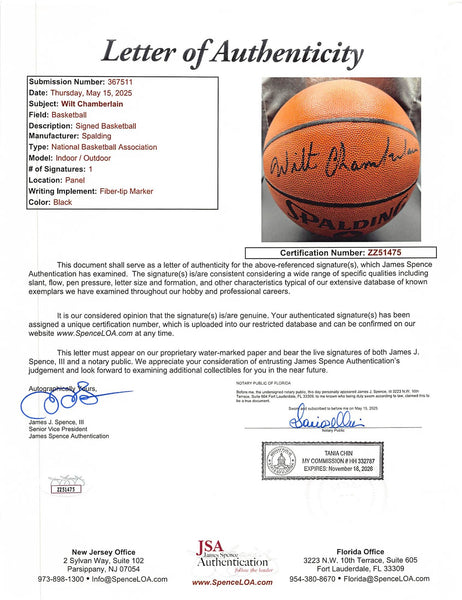 Letter of Authenticity
Submission Number: 367511
Date: Thursday, May 15, 2025
Subject: Wilt Chamberlain
Field: Basketball
Description: Signed Basketball
Manufacturer: Spalding
Type: National Basketball Association
Model: Indoor / Outdoor
# of Signatures: 1
Location: Panel
Writing Implement: Fiber-tip Marker
Color: Black
Wilt Chamberlain
SPALDING
Certification Number: ZZ51475
This document shall serve as a letter of authenticity for the above-referenced signature(s), which James Spence
Authentication has examined. The signature(s) is/are consistent considering a wide range of specific qualities including
slant, flow, pen pressure, letter size and formation, and other characteristics typical of our extensive database of known
exemplars we have examined throughout our hobby and professional careers.
It is our considered opinion that the signature(s) is/are genuine. Your authenticated signature(s) has/have been
assigned a unique certification number, which is uploaded into our restricted database and can be confirmed on our
website www.SpenceLOA.com at any time.
This letter must appear on our proprietary water-marked paper and bear the live signatures of both James J.
Spence, III and a notary public. We appreciate your consideration of entrusting James Spence Authentication's
judgement and look forward to examining additional collectibles for you in the near future.
Autographically Yours,
James J. Spence, III
Senior Vice President
James Spence Authentication
NOTARY PUBLIC OF FLORIDA
Before me, the undersigned notary, this day personally appeared James J. Spence, III 3223 N.W. 10th
Terrace, Suite 604 Fort Lauderdale, FL 33309, to me known who being duly sworn according to law, claimed this to
be a true document.
Sworn and subscribed to before me on May 15, 2025.
Notary Public
TANIA CHIN
MY COMMISSION # HH 332787
EXPIRES: November 16, 2026
ZZ51475
New Jersey Office
2 Sylvan Way, Suite 102
Parsippany, NJ 07054
973-898-1300 • Info@SpenceLOA.com
JSA
James Spence
Authentication
follow the leader
www.SpenceLOA.com
Florida Office
3223 N.W. 10th Terrace, Suite 605
Fort Lauderdale, FL 33309
954-380-8670 • Florida@SpenceLOA.com